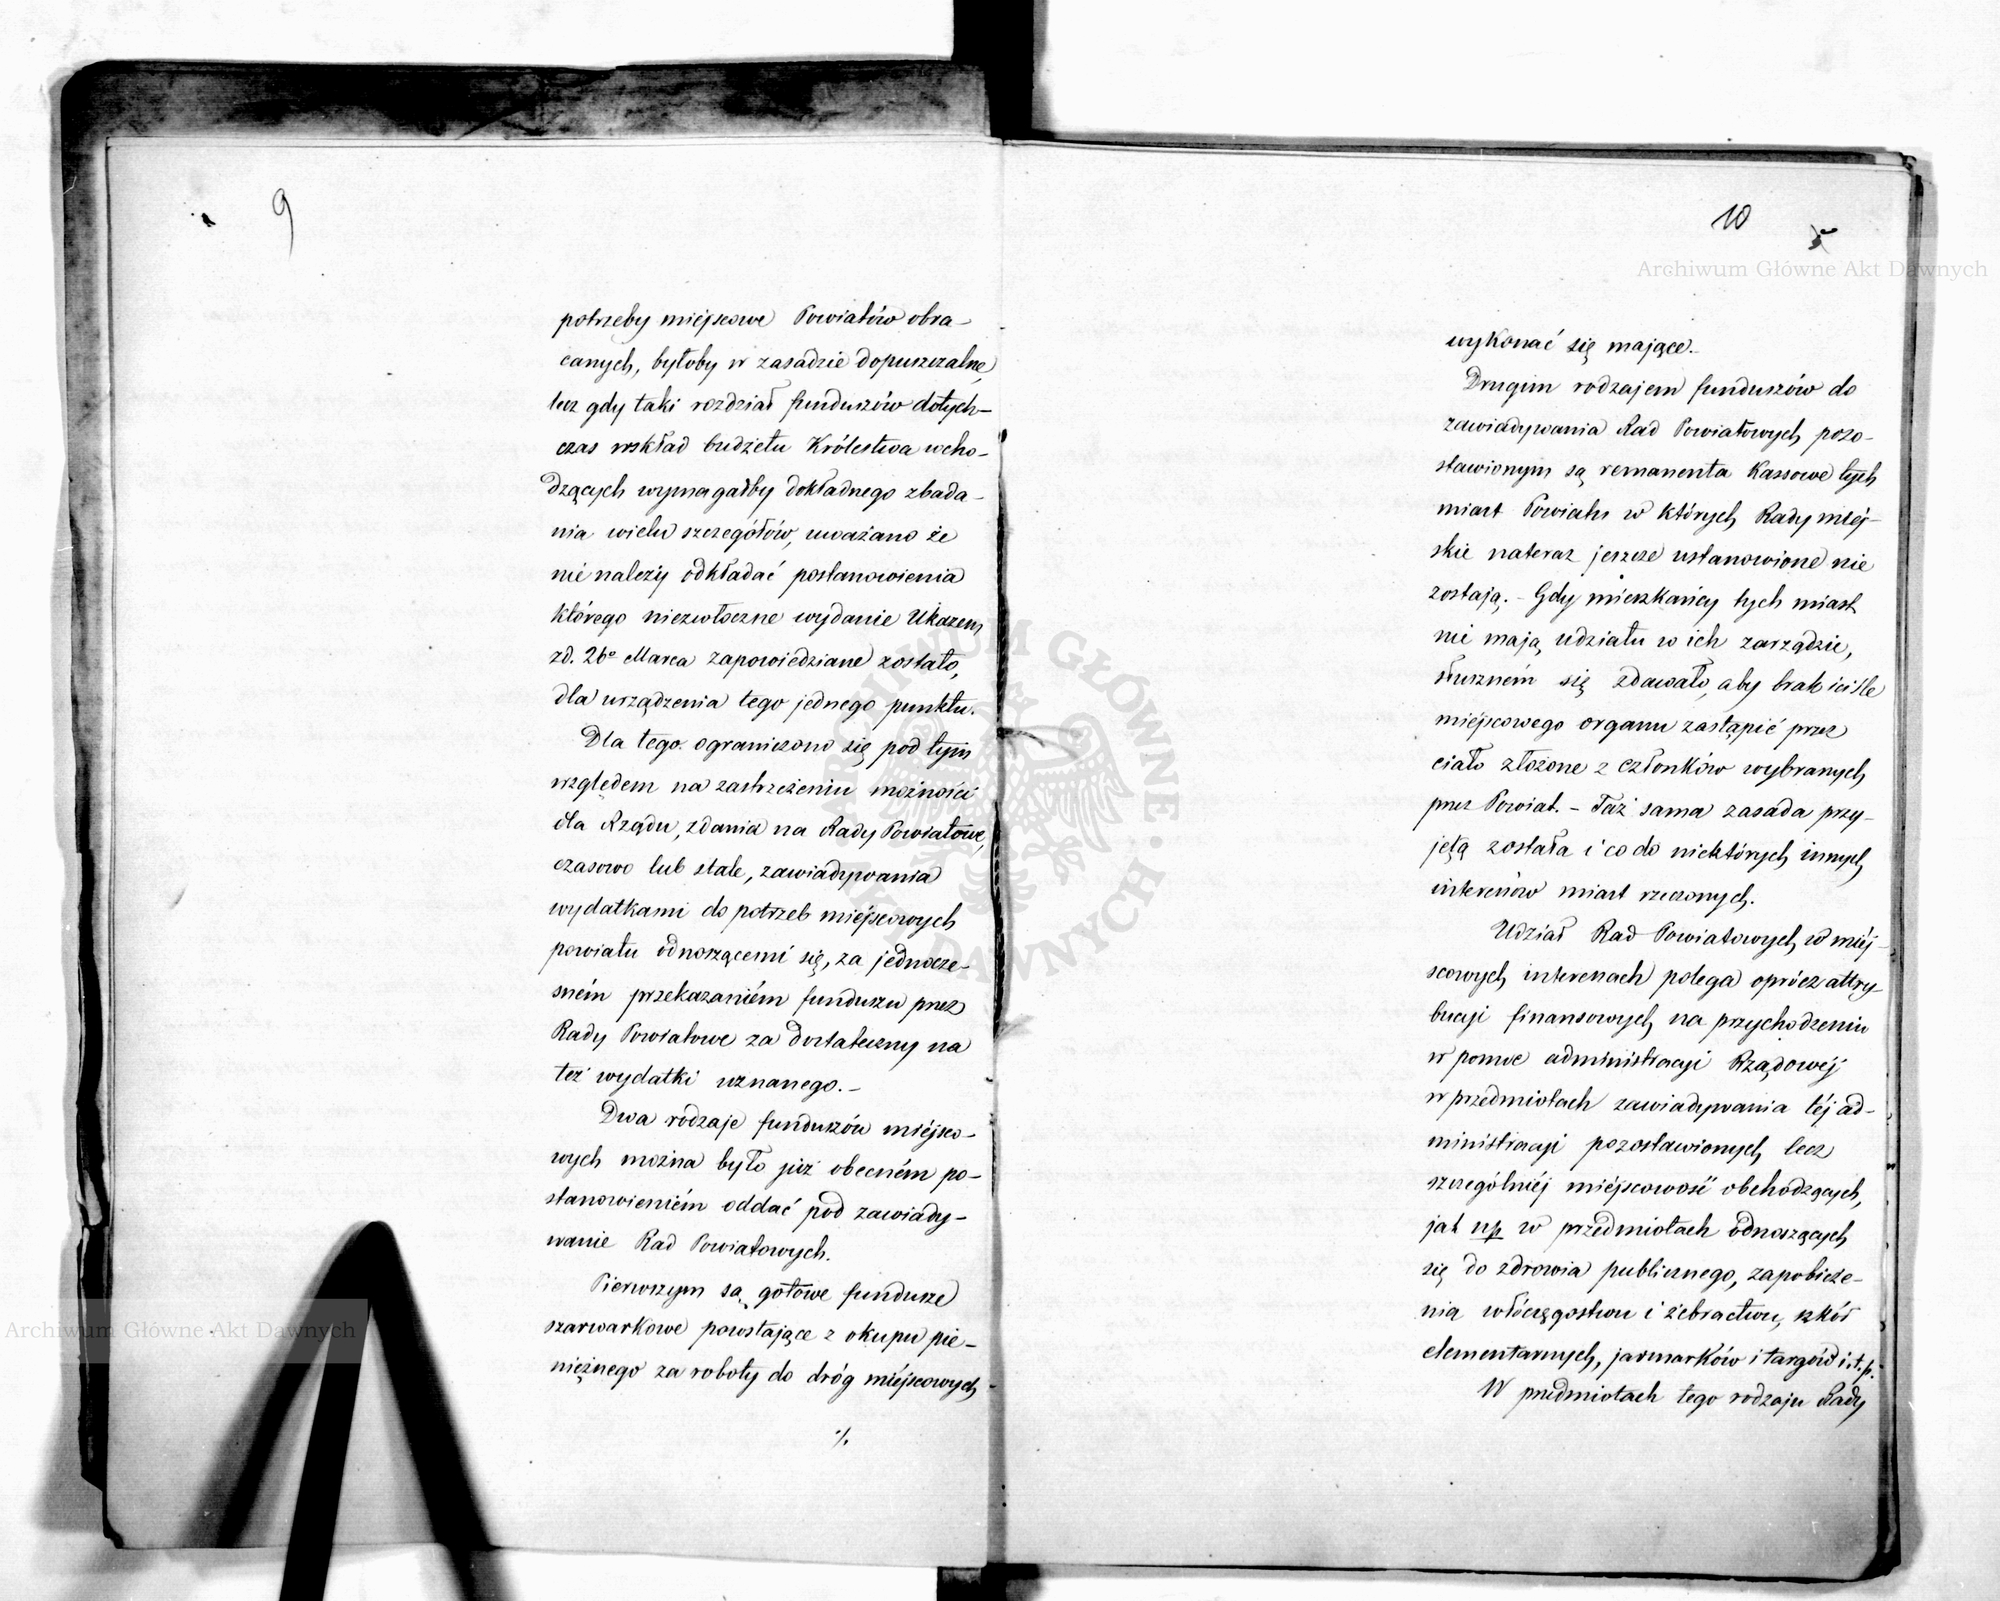 9
potrzeby miéjscowe Powiatów obra-
canych, byłoby w zasadzie dopuszczalne,
lecz gdy taki rozdział funduszów dotych-
czas wskład budżetu Królestwa wcho-
dzących wymagałby dokładnego zbada-
nia wielu szczegółów, uważano że
nie należy odkładać postanowienia
którego niezwłoczne wydanie Ukazem
zd. 26º Marca zapowiedziane zostało,
dla urządzenia tego jednego punktu.
Dla tego ograniczono się pod tym
względem na zastrzeżeniu możności
dla Rządu, zdania na Rady Powiatowe,
czasowo lub stale, zawiadywania
wydatkami do potrzeb miéjscowych
powiatu odnoszącemi się, za jednocze-
sném przekazaniém funduszu przez
Rady Powiatowe za dostateczny na
też wydatki uznanego.-
Dwa rodzaje funduszów miéjsco-
wych można było już obecném po-
stanowieniém oddać pod zawiady-
wanie Rad Powiatowych.
Pierwszym są gotowe fundusze
szarwarkowe powstające z okupu pie-
niężnego za roboty do dróg miéjscowych
./.
10
Archiwum Główne Akt Dawnych
wykonać się mające.-
Drugim rodzajem funduszów do
zawiadywania Rad Powiatowych pozo-
stawionym są remanenta Kassowe tych
miast Powiatu w których Rady miéj-
skie nateraz jeszcze ustanowione nie
zostają.- Gdy mieszkańcy tych miast
nie mają udziału w ich zarządzie,
słuszném się zdawało, aby brak iciśle
miéjscowego organu zastąpić przez
ciało złożone z członków wybranych
przez Powiat.- Taż sama zasada przy-
jętą została i co do niektórych innych
interesów miast rzeczonych.
Udział Rad Powiatowych w miéj-
scowych interesach polega oprócz attry-
bucyi finansowych na przychodzeniu
w pomoc administracyi Rządowéj
w przedmiotach zawiadywania téj ad-
ministracyi pozostawionych lecz
szczególniéj miéjscowość obchodzących,
jak np. w przedmiotach odnoszących
się do zdrowia publicznego, zapobieże-
nia włóczęgostwu i żebractwu, szkół
elementarnych, jarmarków i targów i.t.p.
W przedmiotach tego rodzaju Rady
Archiwum Główne Akt Dawnych
ARCHIWUM GŁÓWNE AKT DAWNYCH